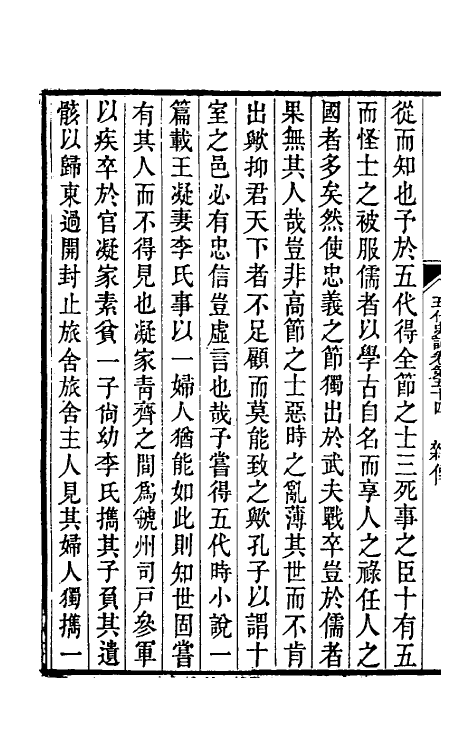 從而知也予於五代得全節之士三死事之臣十有五
而怪士之被服儒者以學古自名而享人之祿任人之
國者多矣然使忠義之節獨出於武夫戰卒豈於儒者
果無其人哉豈非高節之士惡時之亂薄其世而不肯
出歟抑君天下者不足顧而莫能致之歟孔子以謂十
室之邑必有忠信豈虛言也哉予嘗得五代時小說一
篇載王凝妻李氏事以一婦人猶能如此則知世固嘗
有其人而不得見也凝家青齊之間爲虢州司戶參軍
以疾卒於官凝家素貧一子尙幼李氏擕其子負其遺
骸以歸東過開封止旅舍旅舍主人見其婦人獨擕一
五代史記卷第五十四 雜傳